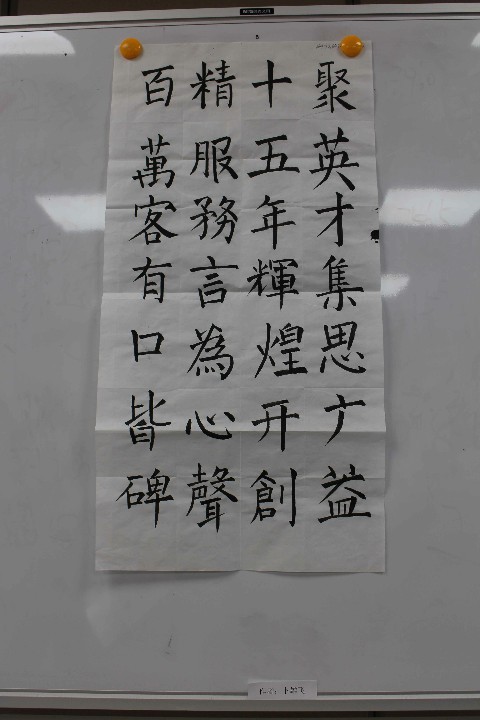 聚英才集思广益
十五年輝煌开創
精服務言為心聲
百萬客有口皆碑